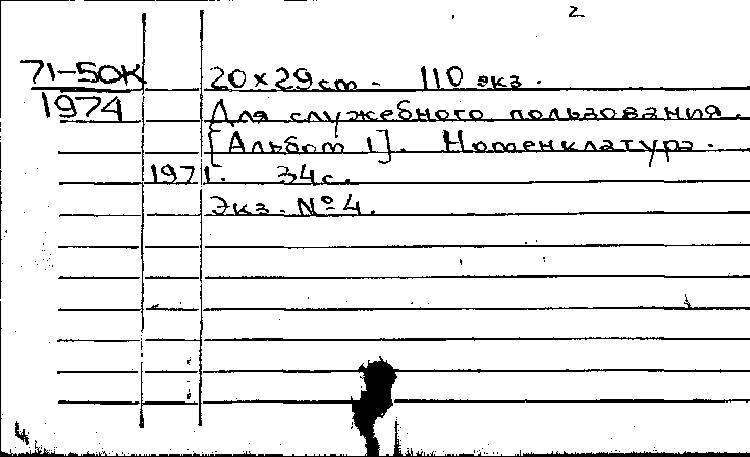 2
71-50К 20×29 cm - 110 экз.
1974 Для служебного пользования.
[Альбом 1]. Номенклатура.
1971. 34 с.
Экз. № 4.
4